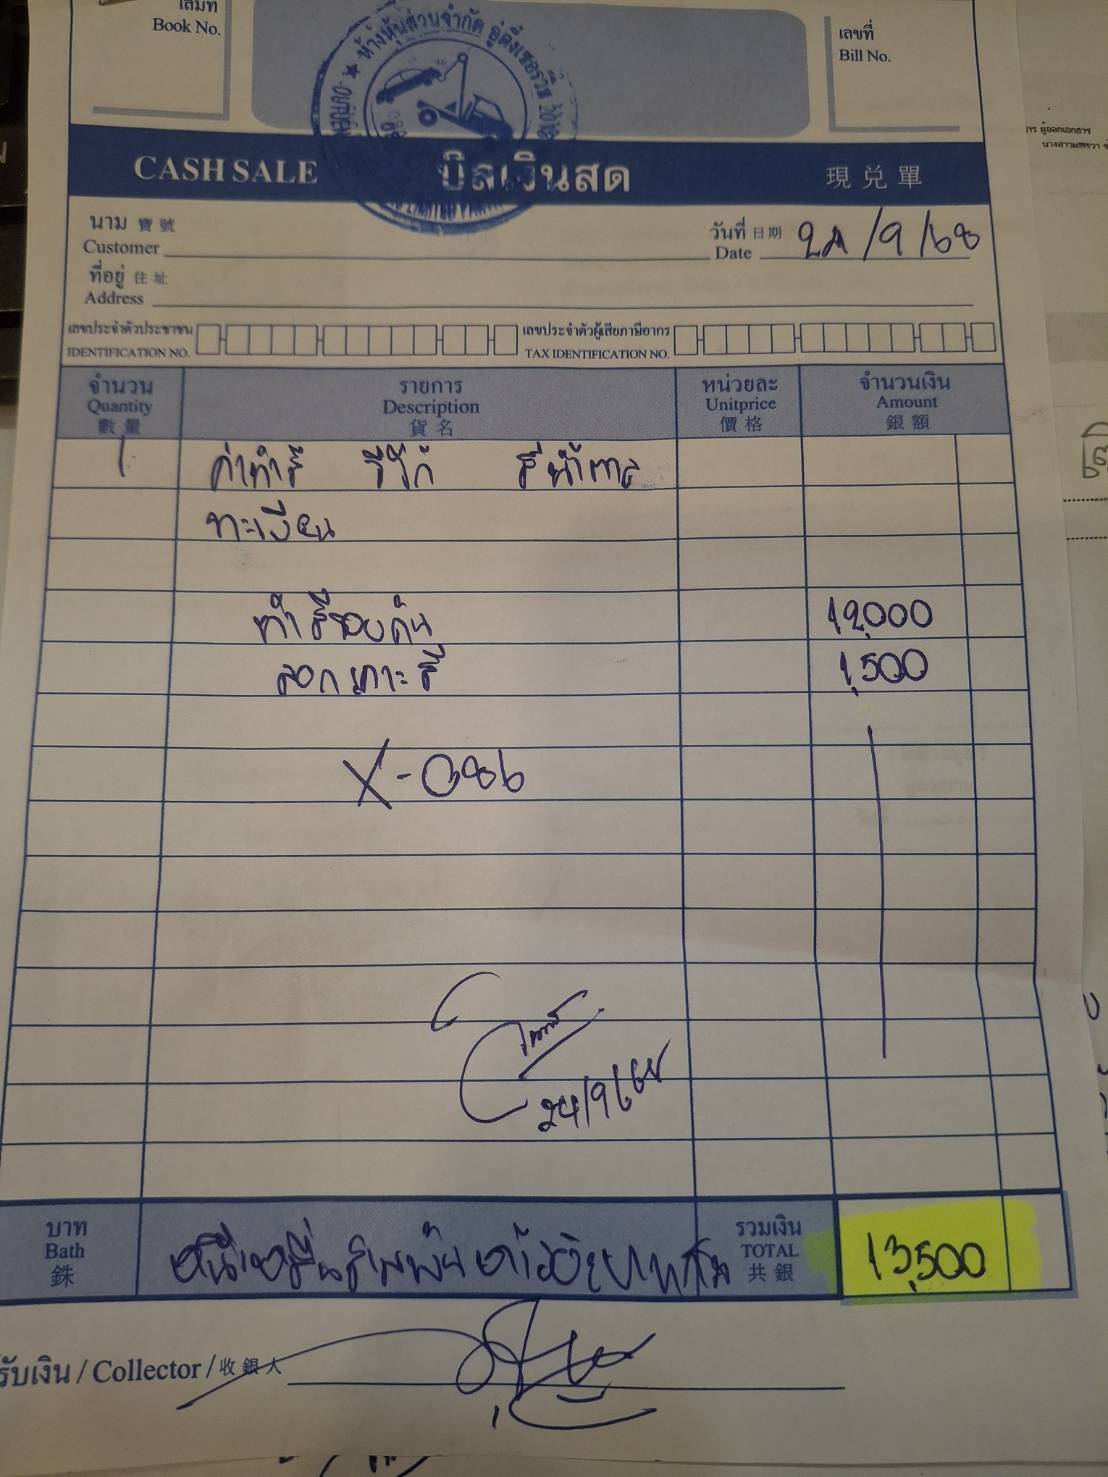 เล่มที่
Book No.
เลขที่
Bill No.
ห้างหุ้นส่วนจำกัด อู่ตึ๋งเซอร์วิส
LIMITED
CASH SALE บิลเงินสด 現兌單
นาม 寶號
Customer
วันที่ 日期
Date 24/9/68
ที่อยู่ 住址
Address
เลขประจำตัวประชาชน
IDENTIFICATION NO.
เลขประจำตัวผู้เสียภาษีอากร
TAX IDENTIFICATION NO.
จำนวน รายการ หน่วยละ จำนวนเงิน
Quantity Description Unitprice Amount
數量 貨名 價格 銀額
1 ค่าทำสี รีโว้ สีน้ำตาล
ทะเบียน
ทำสีรอบคัน 12,000
ลอกเกาะสี 1,500
X-086
24/9/68
บาท
Bath
銖
หนึ่งหมื่นสามพันห้าร้อยบาทถ้วน
รวมเงิน
TOTAL
共銀
13,500
รับเงิน / Collector / 收銀人
ผู้ออกเอกสาร